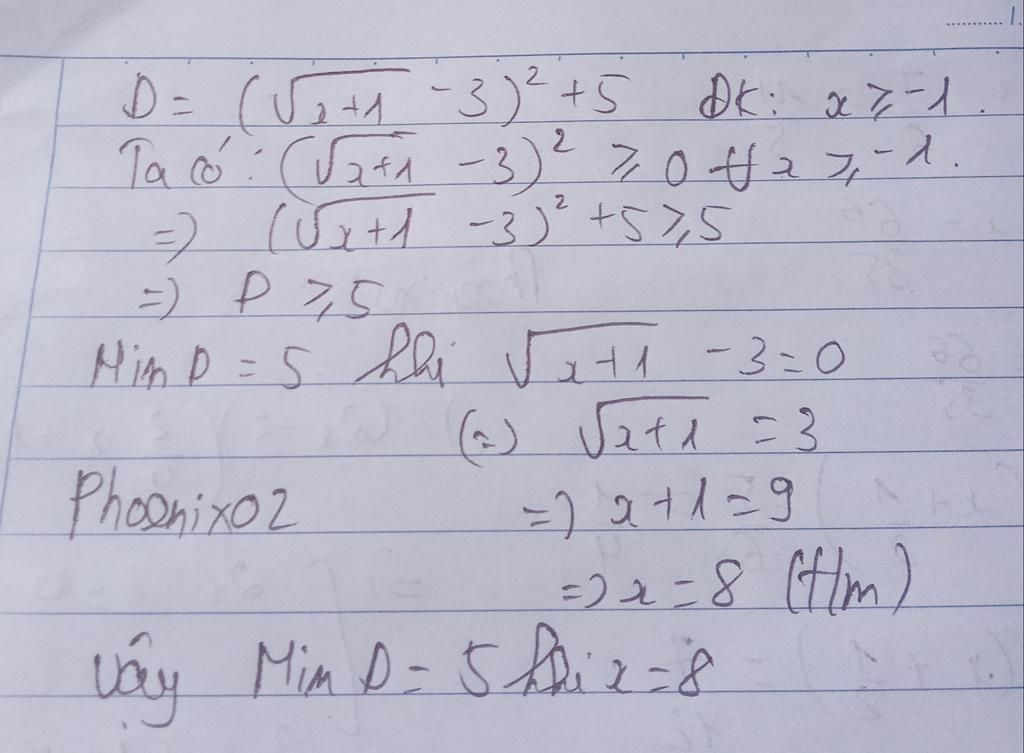 D = (√(x+1) - 3)² + 5 ĐK: x ≥ -1.
Ta có: (√(x+1) - 3)² ≥ 0 ∀x ≥ -1.
=> (√(x+1) - 3)² + 5 ≥ 5
=> D ≥ 5
Min D = 5 khi √(x+1) - 3 = 0
(=) √(x+1) = 3
Phoenix02 => x + 1 = 9
=> x = 8 (t/m)
Vây Min D = 5 khi x = 8